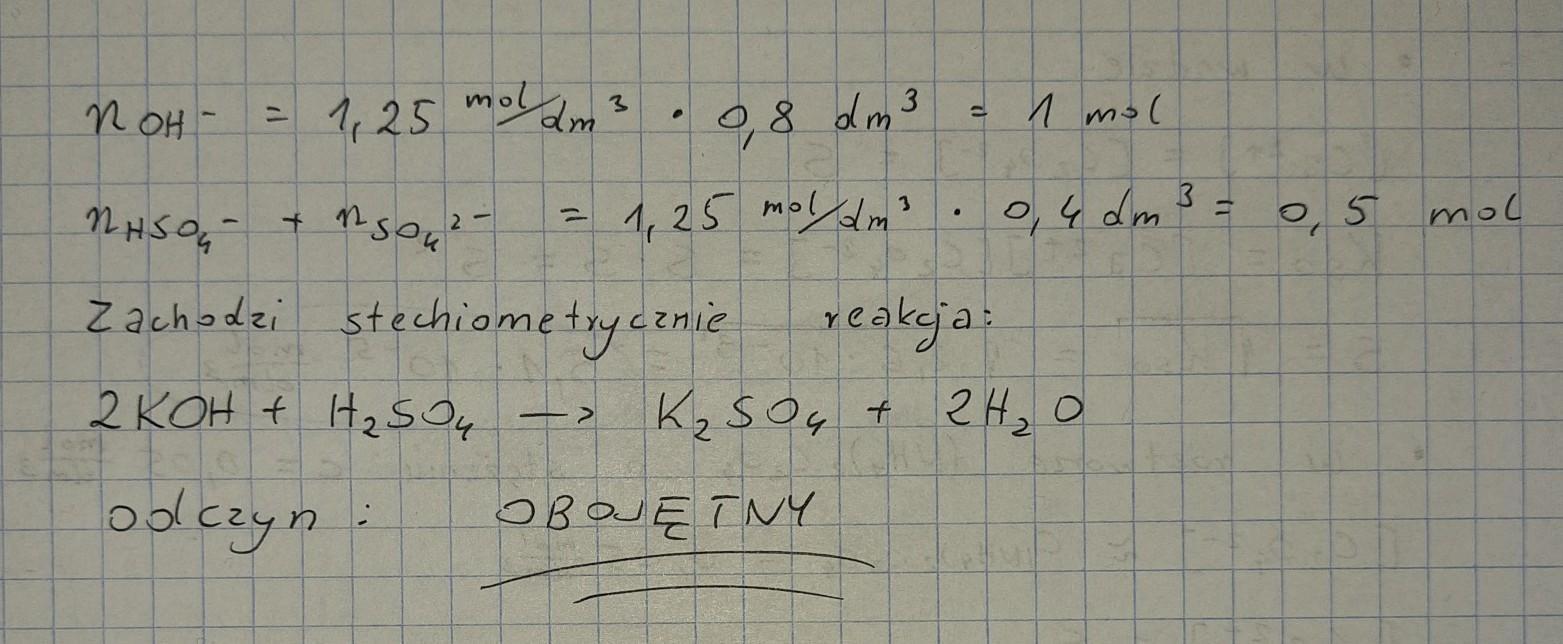 n OH⁻ = 1,25 mol/dm³ · 0,8 dm³ = 1 mol
n HSO₄⁻ + n SO₄²⁻ = 1,25 mol/dm³ · 0,4 dm³ = 0,5 mol
Zachodzi stechiometrycznie reakcja:
2KOH + H₂SO₄ —> K₂SO₄ + 2H₂O
odczyn : OBOJĘTNY